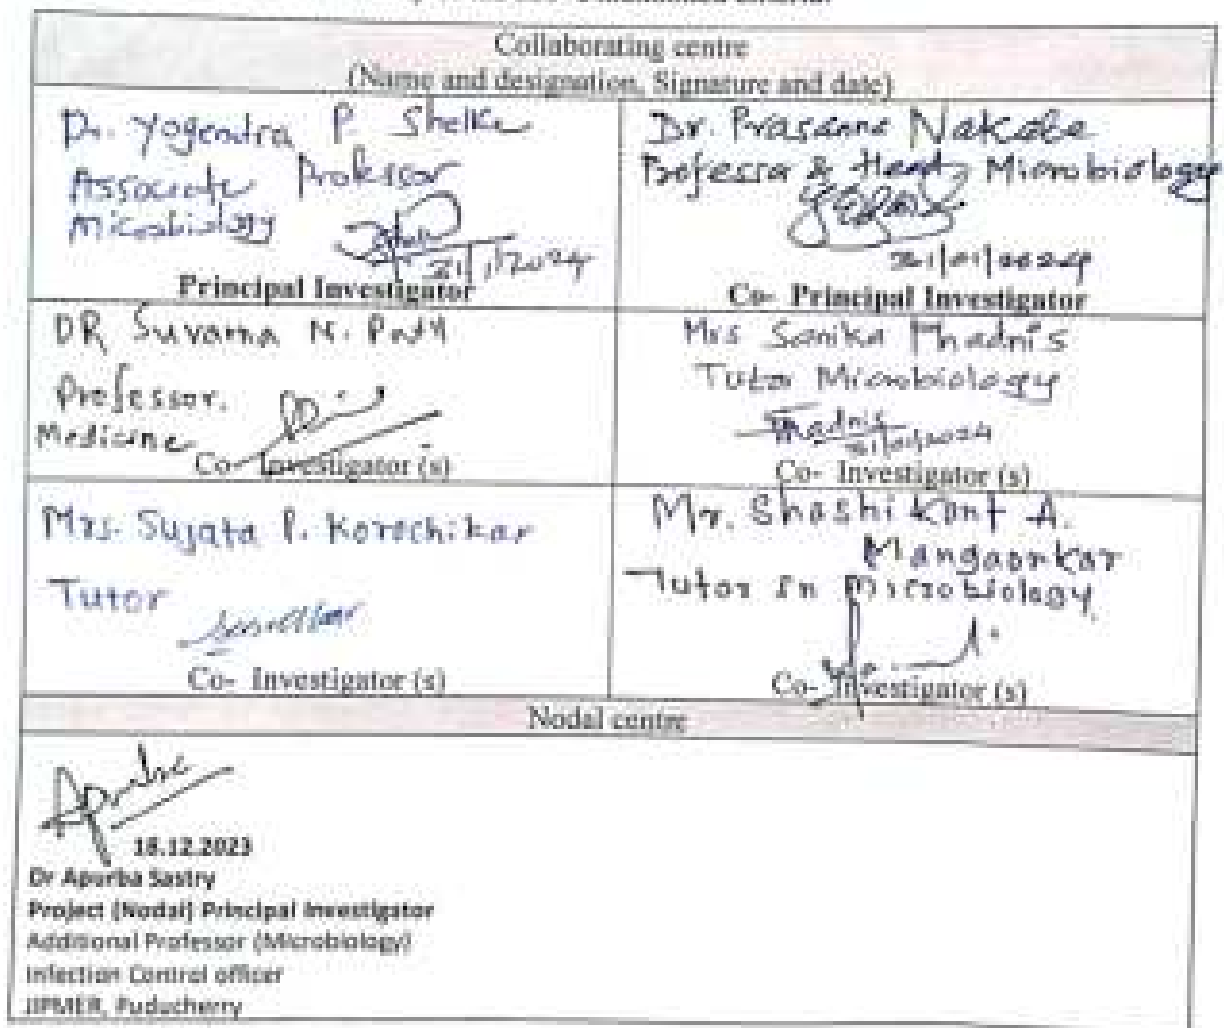 Collaborating centre
(Name and designation, Signature and date)
Dr. Yogendra P. Shelke
Associate Professor
Microbiology
31/1/2024
Principal Investigator
Dr. Prasanna Nakate
Professor & Head, Microbiology
31/01/2024
Co- Principal Investigator
DR Suvarna N. Patil
Professor.
Medicine
Co- Investigator (s)
Mrs Sanika Phadnis
Tutor Microbiology
Phadnis
31/01/2024
Co- Investigator (s)
Mrs. Sujata P. Korochikar
Tutor
Co- Investigator (s)
Mr. Shashikant A.
Mangaonkar
Tutor in Microbiology
Co- Investigator (s)
Nodal centre
Apurba
18.12.2023
Dr Apurba Sastry
Project (Nodal) Principal Investigator
Additional Professor (Microbiology)
Infection Control officer
JIPMER, Puducherry